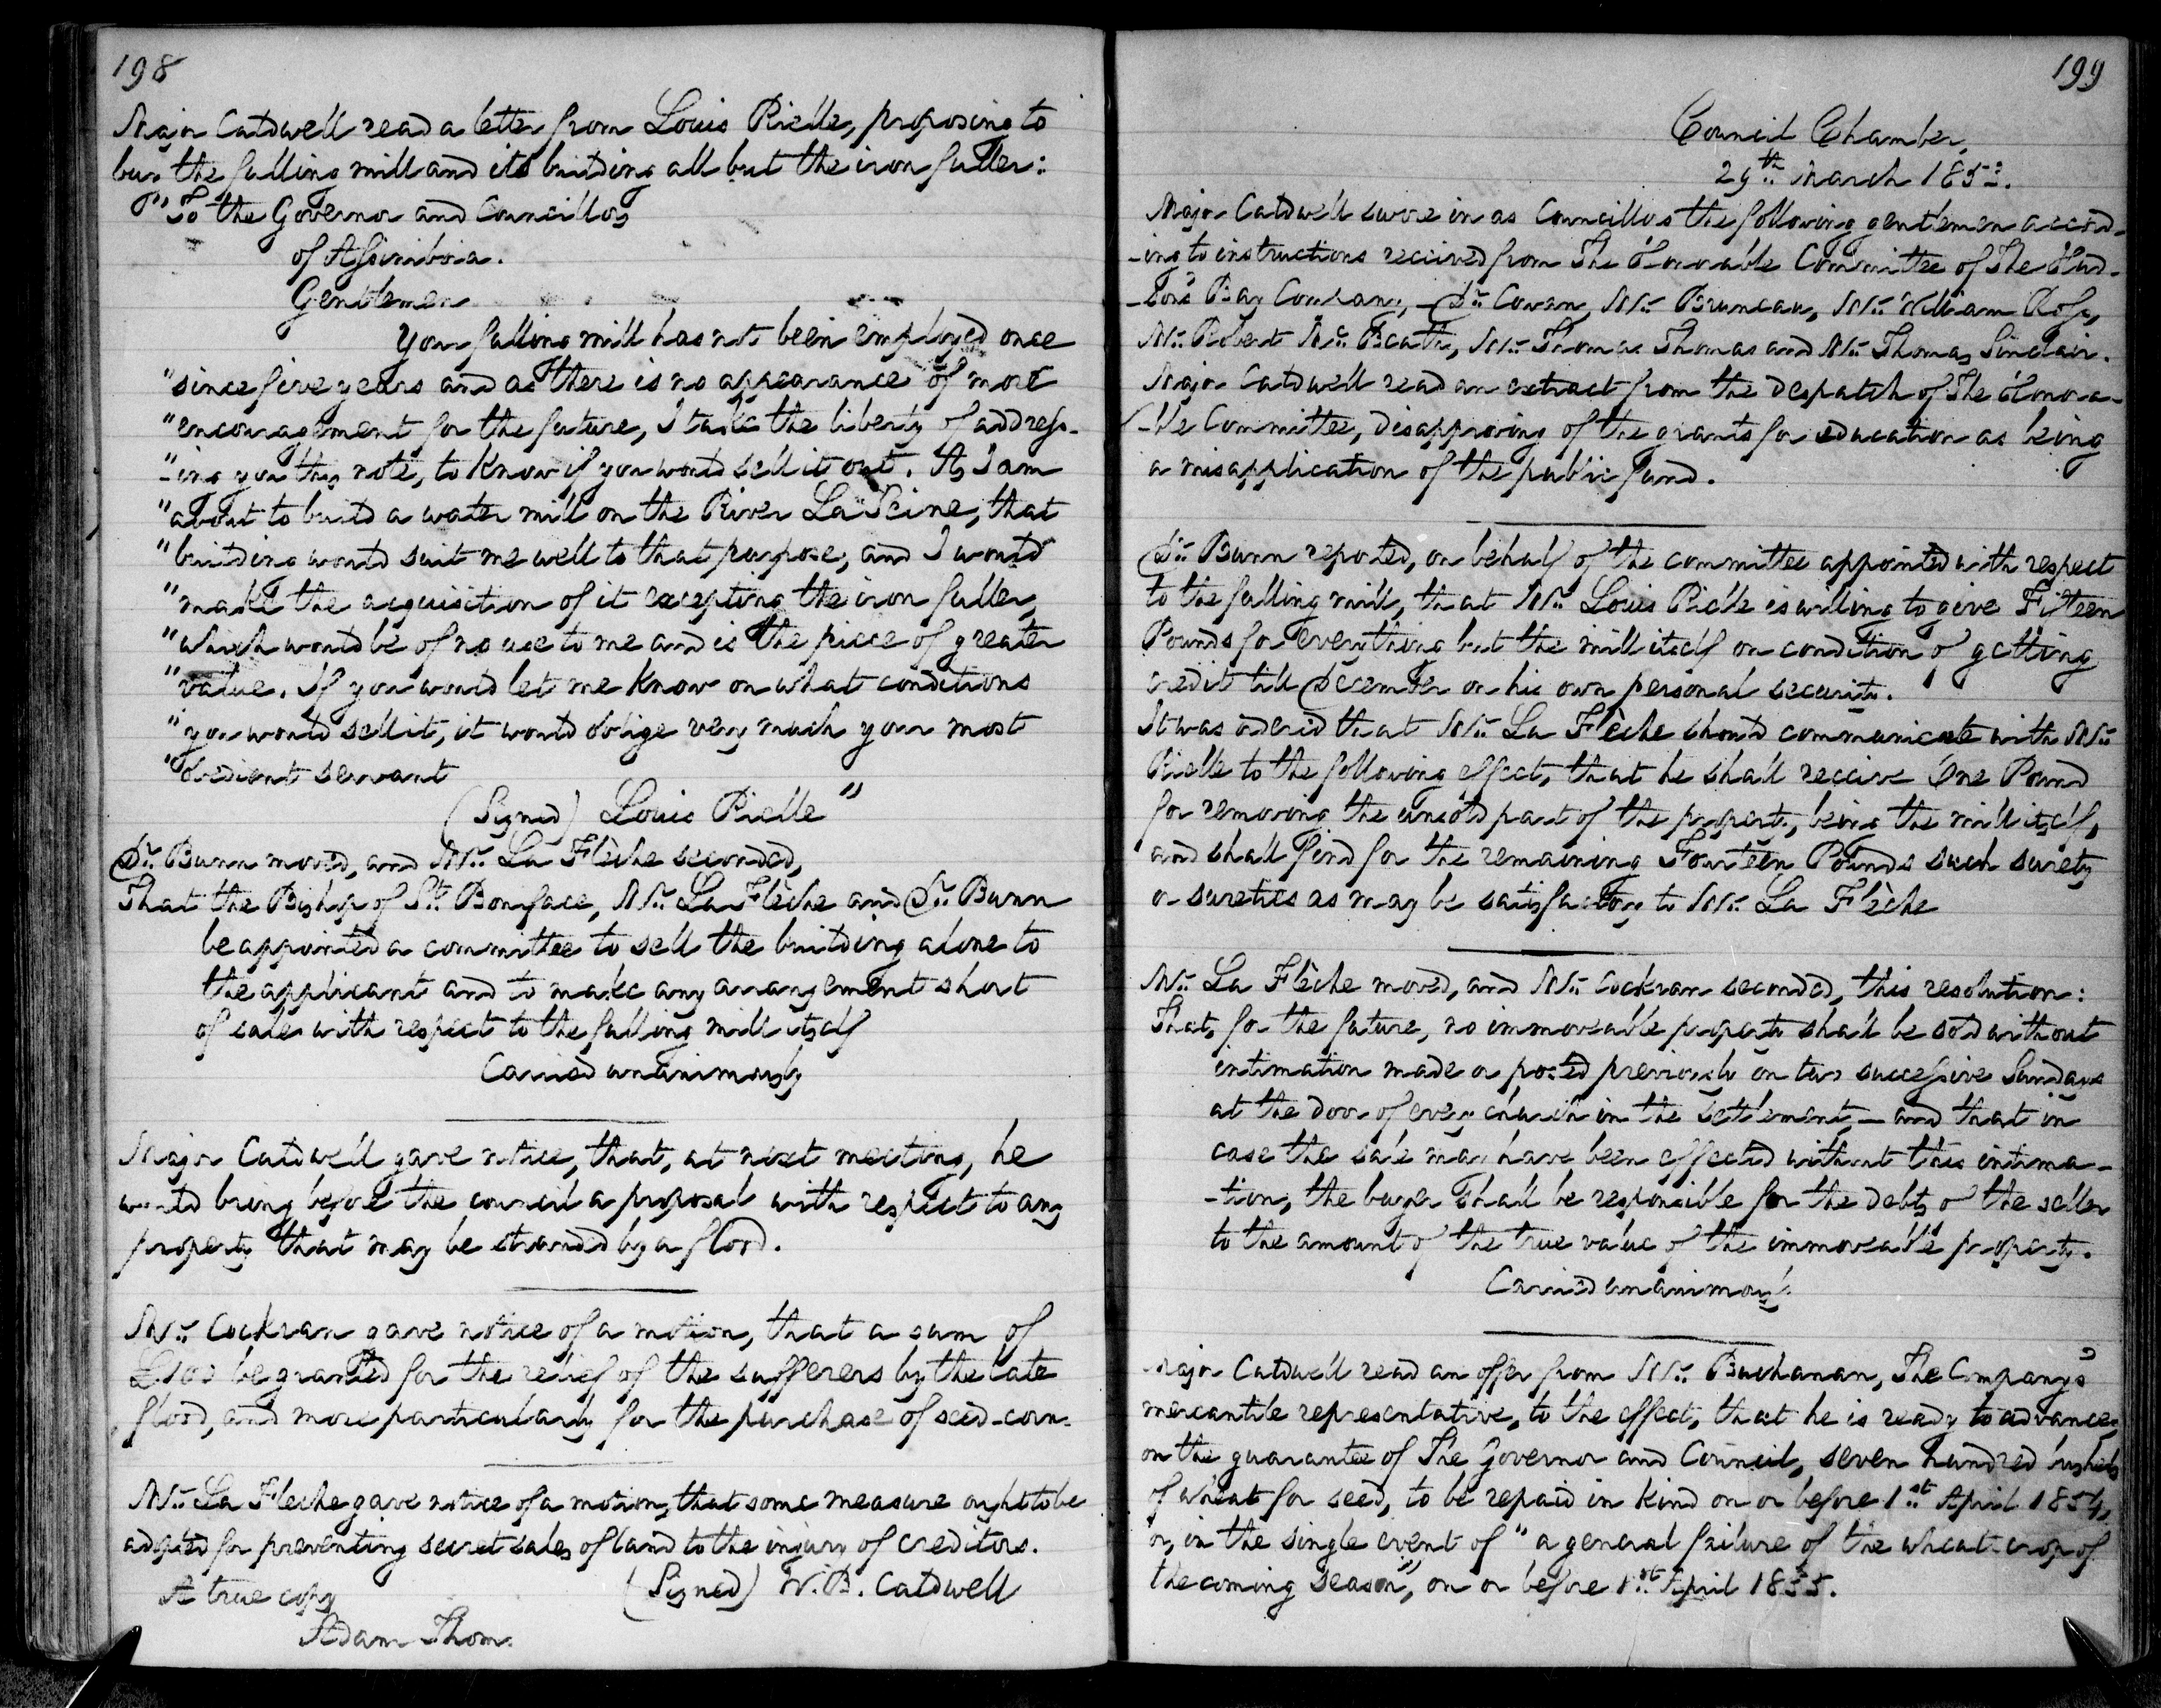 198
Major Caldwell read a letter from Louis Rielle, proposing to
buy the fulling mill and its building all but the iron fuller:
"To the Governor and Councillors
of Assiniboia.
Gentlemen
Your fulling mill has not been employed once
"since five years and as there is no appearance of more
"encouragement for the future, I take the liberty of address-
"-ing you this note, to know if you would sell it out. As I am
"about to build a water mill on the River La Seine, that
"building would suit me well to that purpose, and I would
"make the acquisition of it excepting the iron fuller,
"which would be of no use to me and is the piece of greater
"value. If you would let me know on what conditions
"you would sell it, it would oblige very much your most
"obedient servant
(Signed) Louis Rielle"
Dr. Bunn moved, and Mr. La Flèche seconded,
That the Bishop of St. Boniface, Mr. La Flèche and Dr. Bunn
be appointed a committee to sell the building alone to
the applicant and to make any arrangement short
of sale with respect to the fulling mill itself
Carried unanimously
Major Caldwell gave notice, that, at next meeting, he
would bring before the council a proposal with respect to any
property that may be stranded by a flood.
Mr. Cockran gave notice of a motion, that a sum of
£100 be granted for the relief of the sufferers by the late
flood, and more particularly for the purchase of seed-corn.
Mr. La Fleche gave notice of a motion, that some measure ought to be
adopted for preventing secret sales of land to the injury of creditors.
A true copy (Signed) W. B. Caldwell
Adam Thom.
199
Council Chamber,
29th March 1853.
Major Caldwell swore in as Councillors the following gentlemen accord-
-ing to instructions received from The Honorable Committee of The Hud-
-son's Bay Company, - Dr. Cowan, Mr. Bruneau, Mr. William Ross,
Mr. Robert McBeath, Mr. Thomas Thomas and Mr. Thomas Sinclair.
Major Caldwell read an extract from the despatch of The Honora-
-ble Committee, disapproving of the grants for education as being
a misapplication of the public fund.
Dr. Bunn reported, on behalf of the committee appointed with respect
to the fulling mill, that Mr. Louis Rielle is willing to give Fifteen
Pounds for everything but the mill itself on condition of getting
credit till December on his own personal security.
It was ordered that Mr. La Flèche should communicate with Mr.
Rielle to the following effect, that he shall receive One Pound
for removing the unsold part of the property, being the mill itself,
and shall find for the remaining Fourteen Pounds such surety
or sureties as may be satisfactory to Mr. La Flèche
Mr. La Flèche moved, and Mr. Cockran seconded, this resolution:
That, for the future, no immoveable property shall be sold without
intimation made or posted previously on two successive Sundays
at the door of every church in the settlement, - and that in
case the sale may have been effected without this intima-
-tion, the buyer shall be responsible for the debts of the seller
to the amount of the true value of the immoveable property.
Carried unanimously
Major Caldwell read an offer from Mr. Buchanan, The Company's
mercantile representative, to the effect, that he is ready to advance,
on the guarantee of The Governor and Council, seven hundred bushels
of wheat for seed, to be repaid in kind on or before 1st April 1854,
or, in the single event of "a general failure of the wheat-crop of
the coming season", on or before 1st April 1855.